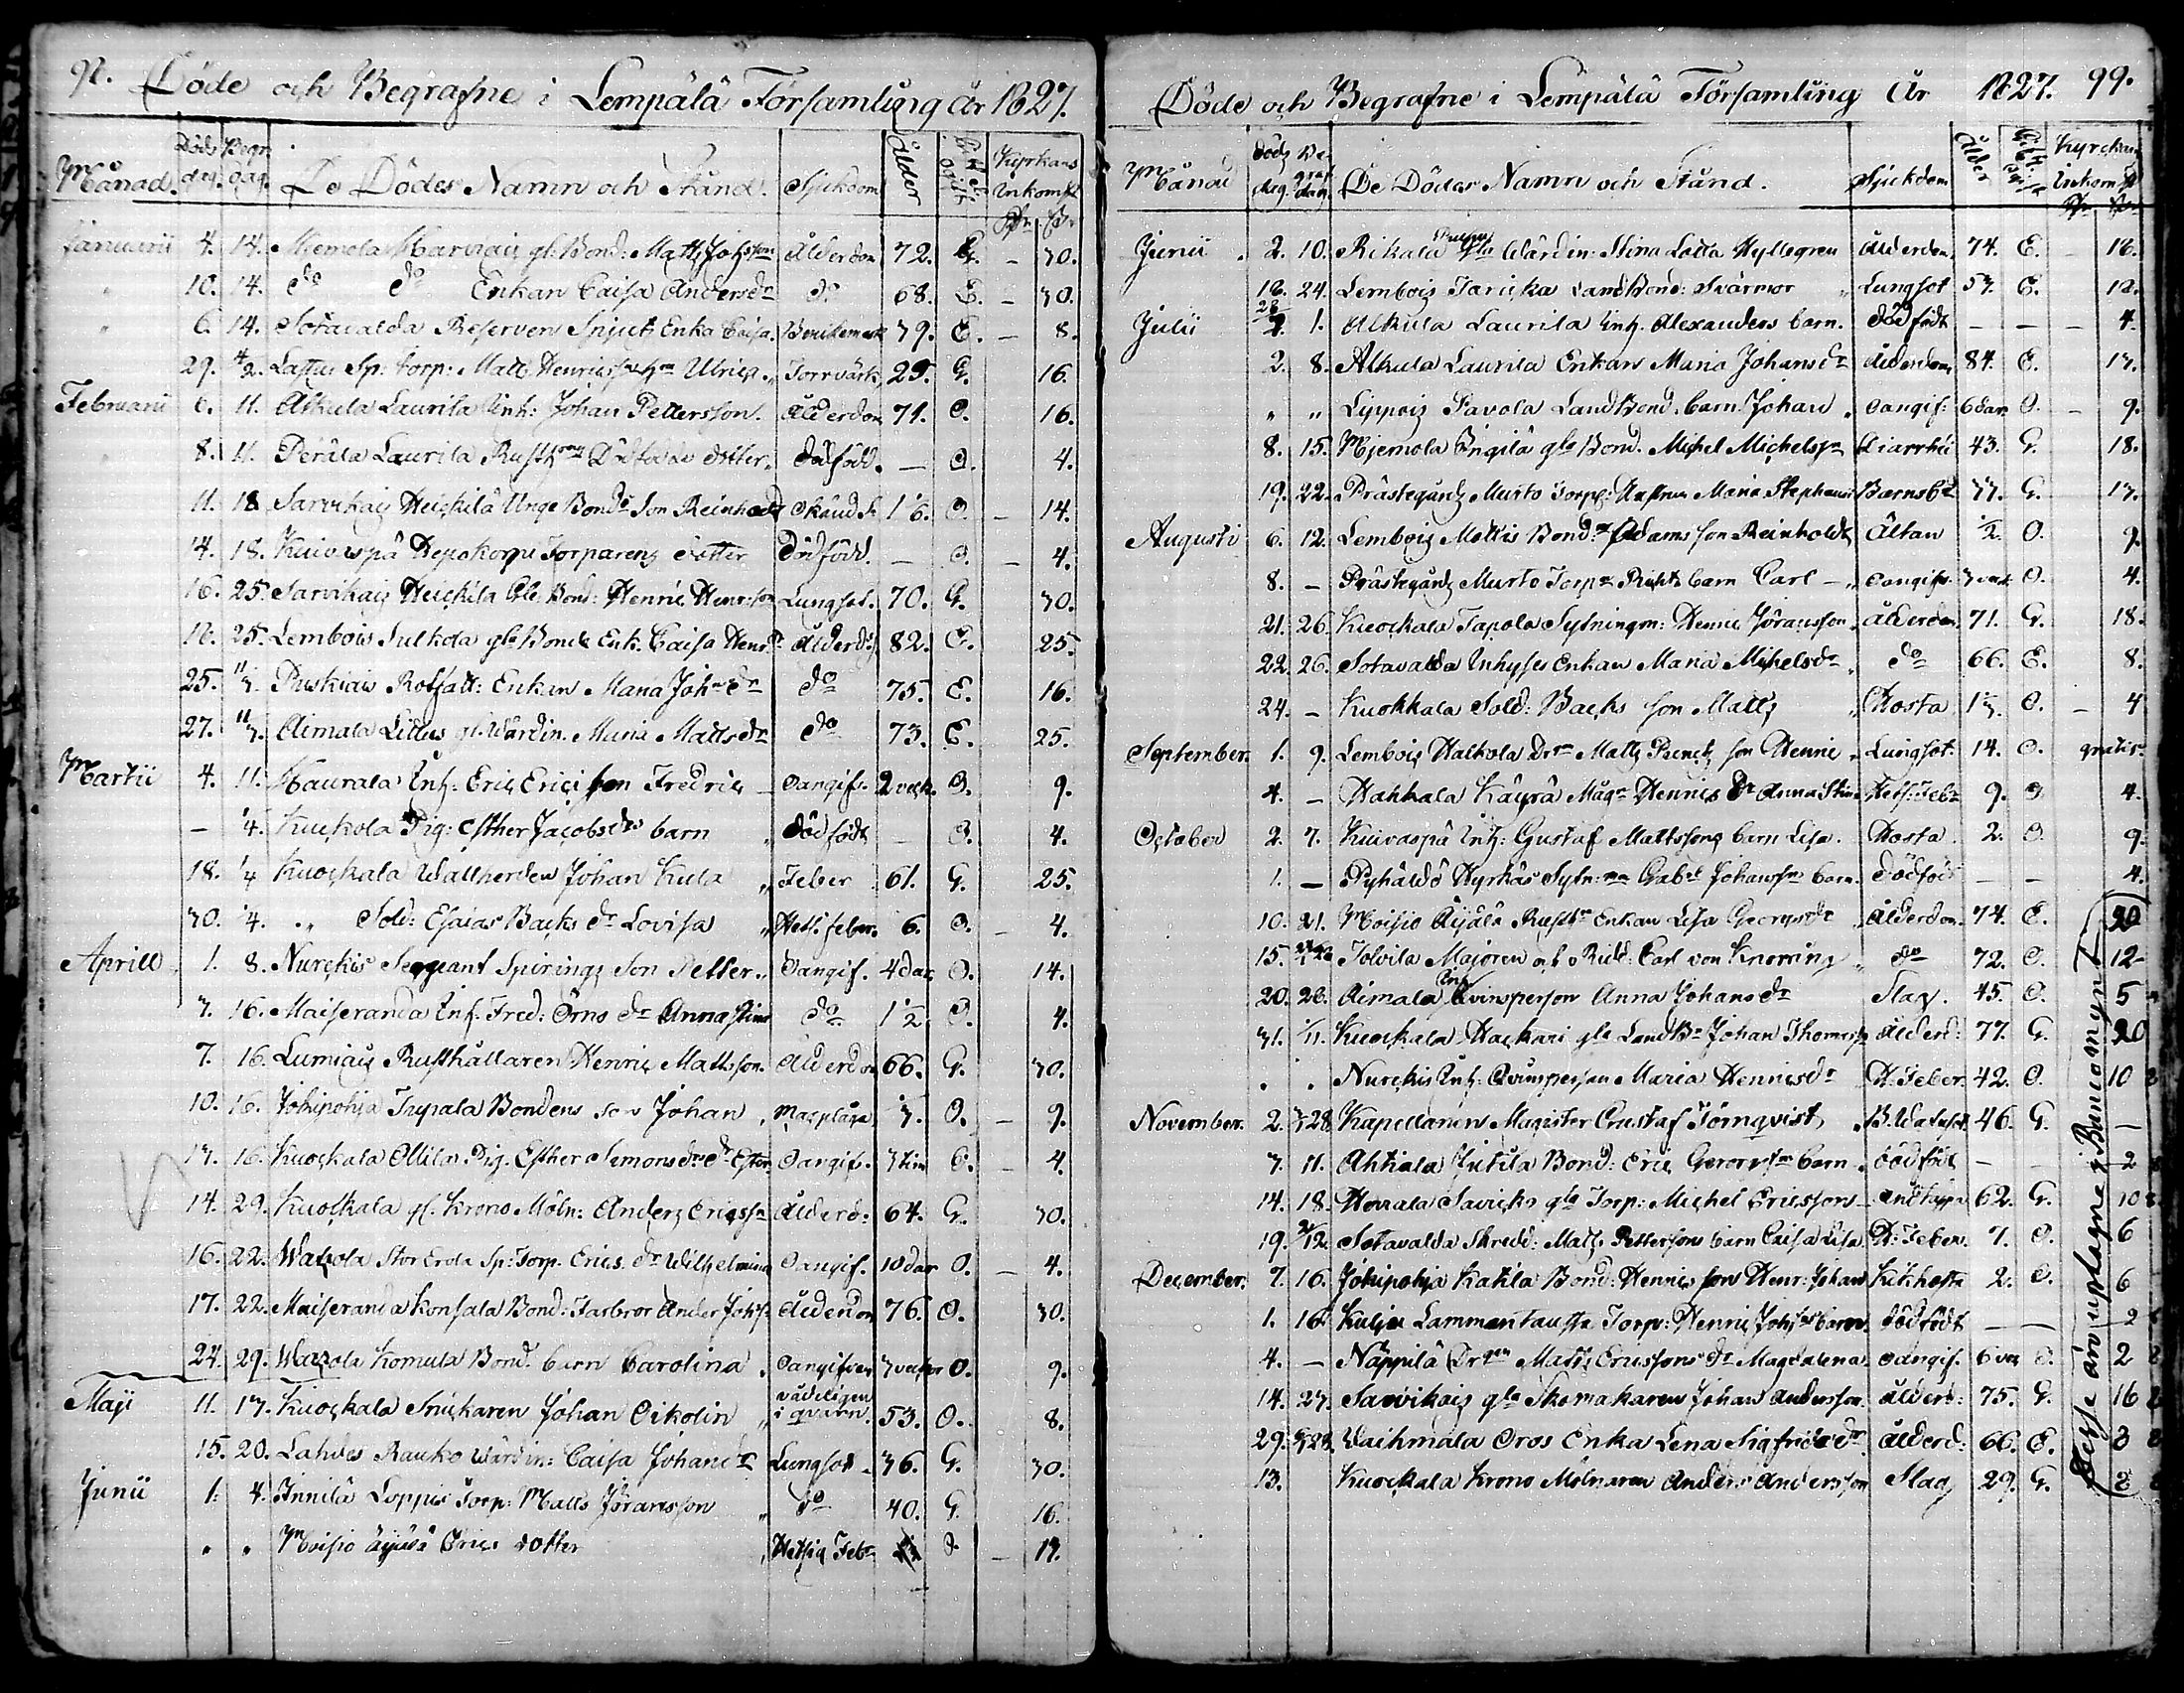 92. Döde och Begrafne i Lempälä Församling år 1827.
Månad. Döds dag. Begr. dag. De Dödes Namn och Stånd. Sjukdom Ålder Gift Ogift Kyrkans Inkomst
Januarii 4. 14. Miemola gl: Bond: Matts Johsson Ålderdom 72. G. - 30.
" 10. 14. do do Enkan Caisa Andersdr do 68. E. - 30.
" 6. 14. Sotavalda Reserven Enka Caisa. 79. E. - 8.
29. 4/2. Lastus Sp: torp: Matts Henricss hu Ulrica Torrvärk 29. G. 16.
Februarii 6. 11. Alkula Laurila Inh: Johan Pettersson. Ålderdom 71. O. 16.
8. 11. Perälä Laurila Dödfödda dotter. dödfödd. — O. 4.
11. 18. Sarvikais Heickilä Unge Bonds Son Reinhold 1 6. O. - 14.
14. 18. Kuivaspä Torparens dotter dödfödd. - O. - 4.
16. 25. Sarvikais Heickilä Gle Bond: Henric Henrsson Lungsot. 70. G. 30.
18. 25. Lembois Sulkola gle Bonde Enk. Caisa Henrsdr Ålderd: 82. O. 25.
25. 11/3. Puskiais Rotfatt: Enkan Maria Johsdr do 75. E. 16.
27. 11/3. Aimala Littus gl: Värdin. Maria Mattsdr do 73. E. 25.
Martii 4. 11. Maurala Inh: Eric Erici son Fredric - oangif. 2 veck. O. 9.
- 1/4. Kuckola Pig: Esther Jacobsdrs barn " dödfödt - O. 4.
18. 1/4 Kuockala Vallherden Johan Kula " Feber 61. G. 25.
30. 1/4. " Sold: Esaias Backs dr Lovisa " Hets. feber. 6. O. - 4.
Aprill 1. 8. Nurckis Sergeant Spirings Son Petter " Oangif. 4 dar O. 14.
3. 16. Maiseranda Inh. Fred: Örns dr Anna Stina do 1 1/2 O. 4.
7. 16. Lumiais Rusthållaren Henric Mattsson. Ålderdom 66. G. 30.
10. 16. Jokipohja Bondens son Johan, Magplåga 3. O. - 9.
13. 16. Kuockala Ollila Pig: Esther Simonsdrs dr Ester Oangif. 3 tim O. - 4.
14. 29. Kuockala gl. Krono Möln: Anders Ericsson Ålderd: 64. G. 30.
16. 22. Stor Erola Sp: Torp. Erics. dr Wilhelmina Oangif. 10 dar O. - 4.
17. 22. Maiseranda Konsala Bond: Farbror Ander Johss Ålderdom 76. O. 30.
24. 29. Komula Bond. barn Carolina. oangifven 3 veckor O. 9.
Maji 11. 13. Kuockala Snickaren Johan Oikolin " vådeligen i qvarn. 53. O. 8.
15. 20. Lahdes Rauko värdin: Caisa Johansdr Lungsot - 36. G. 30.
Junii 1. 4. Innilä Loppis Torp: Matts Jöransson " do 40. G. 16.
" " Moisio Äijälä Erics dotter , Hetsig Febr O - 13.
Döde och Begrafne i Lempälä Församling År 1827. 99.
Månad döds dag. Begraf dag De Dödes Namn och Stånd. Sjukdom Ålder Kyrckans Inkomst
Junii 2. 10. Rikala gla Värdin: Stina Lotta Hyllegren ålderdom 74. E. - 16.
18. 24. Lembois Landbond: Svärmor " Lungsot 53. E. 12.
Julii 1. Alkula Laurila Inh. Alexanders barn. död födt - - - 4.
2. 8. Alkula Laurila Enkan Maria Johansdr ålderdom 84. E. 13.
" " Lippois Pavola Landbond. barn Johan. oangif: 6 dar. O. - 9.
8. 15. Mjemola gle Bond. Michel Michelsson Diarrhé 43. G. 18.
19. 22. Prästegårds Murto Torp: Hustru Maria Barnsbd 33. G. 13.
Augusti 6. 12. Lembois Mattis Bondns Adams son Reinholdt Ältan 1/2. O. 9.
8. - Prästegårds Murto Torp: barn Carl - " oangif. 3 veck O. 4.
21. 26. Kuockala Tapola Sytningm: Henric Jöransson " ålderdom 71. G. 18.
22. 26. Sotavalda Inhyses Enkan Maria Michelsdr " do 66. E. 8.
24. - Kuokkala Sold: Backs son Matts " Hosta 1 1/3. O. - 4
September. 1. 9. Lembois Halkola Matts son Henric " Lungsot. 14. O. gratis.
4. - Hakkala Käyrä Mågn Henrics dr Anna Stina Hets: Febr 9. O 4.
October 2. 7. Kuivaspä Inh: Gustaf Mattssons barn Lisa. Hosta 2. O. 9.
1. - Pyhäldö Hyrkäs Sytn: Gabrl Johanss barn. dödfödt - - 4.
10. 21. Moisio Äijälä Rusth: Enkan Lisa Georgsdr ålderdom. 74. E. 20
15. Tolvila Majoren och Ridd: Carl von Knorring " do 72. O. 12
20. 28. Aimala Inh Qvinsperson Anna Johansdr Slag. 45. O. 5
31. 1/11. Kuockala Hackari gle Landb: Johan Thomass ålderd: 77. G. 20
. . Nurckis Inh: Qvinsperson Maria Henricsdr H. Feber. 42. O. 10
November. 2. 28 Kapellanen Magister Gustaf Törnqvist, B. Vatusot. 46. G. -
3. 11. Ahtiala Jutila Bond: Eric Georgss barn. dödfödt - - 2
14. 18. Hovrala Savicko gle Torp: Michel Ericssons - 62. G. 10
19. 2/12. Sotavalda Skredd: Matts Petterssons barn Caisa Lisa H. Feber. 7. O. 6
December. 7. 16. Jokipohja Katila Bond: Henrics son Henr: Johan Kikhosta 2. O. 6
1. 16. Kulju Lammentausta Torp: Henric Johss barn. dödfödt - - 2
4. - Näppilä Matts Ericssons dr Magdalena oangif. 6 vec O. 2
14. 23. Sarvikais gle Skomakaren Johan Andersson. ålderd: 75. G. 16
29. Vaihmala Oros Enka Lena Sigfridsdr ålderd: 66. E. 8
13. Kuockala Krono Mölnaren Anders Andersson Slag 29. G. 8
Desse äro upptagne i Bancomynt